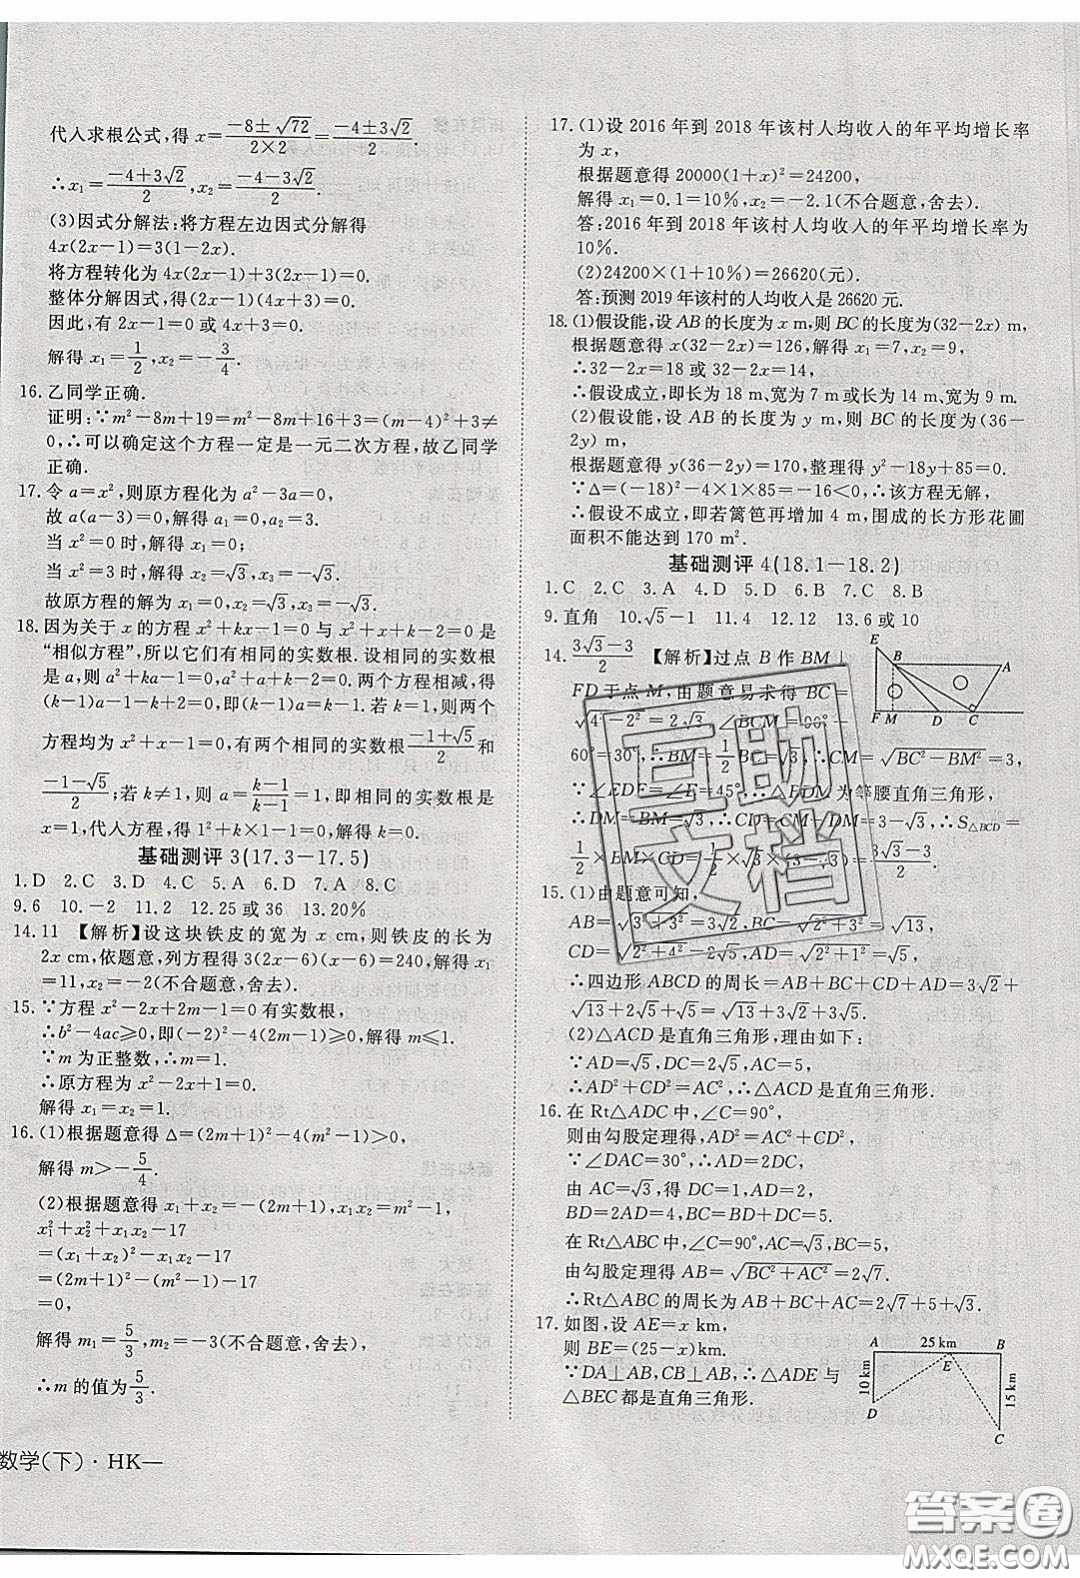 代入求根公式，得 x=(-8±√72)/(2×2)=(-4±3√2)/2.
∴x₁=(-4+3√2)/2,x₂=(-4-3√2)/2.
(3)因式分解法：将方程左边因式分解得
4x(2x-1)=3(1-2x).
将方程转化为 4x(2x-1)+3(2x-1)=0.
整体分解因式，得(2x-1)(4x+3)=0.
因此，有 2x-1=0 或 4x+3=0.
解得 x₁=1/2,x₂=-3/4.
16.乙同学正确.
证明：∵m²-8m+19=m²-8m+16+3=(m-4)²+3≠
0,∴可以确定这个方程一定是一元二次方程，故乙同学
正确.
17.令 a=x²,则原方程化为 a²-3a=0,
故 a(a-3)=0,解得 a₁=0,a₂=3.
当 x²=0 时，解得 x₁=x₂=0;
当 x²=3 时，解得 x₂=√3,x₃=-√3.
故原方程的解为 x₁=0,x₂=√3,x₃=-√3.
18.因为关于 x 的方程 x²+kx-1=0 与 x²+x-k=0 是
“相似方程”，所以它们有相同的实数根.设相同的实数根
是 a,则 a²+ka-1=0,a²+a-k=0,两个方程相减，得
(k-1)a-1-k+2=0,即(k-1)a=k-1.若 k=1,则
方程均为 x²+x-1=0,有两个相同的实数根(-1+√5)/2和
(-1-√5)/2;若 k≠1,则 a=(k-1)/(k-1)=1,即相同的实数根是
x=1,代入方程，得 1²+k×1-1=0,解得 k=0.
基础测评 3(17.3-17.5)
1.D 2.C 3.D 4.C 5.A 6.D 7.A 8.C
9.6 10.-2 11.2 12.25 或 36 13.20%
14.11 【解析】设这块铁皮的宽为 x cm,则铁皮的长为
2x cm,依题意，列方程得 3(2x-6)(x-6)=240,解得 x₁
=11,x₂=-2(不合题意，舍去).
15.∵方程 x²-2x+2m-1=0 有实数根，
∴b²-4ac≥0,即(-2)²-4(2m-1)≥0,解得 m≤1.
∵m 为正整数，∴m=1.
∴原方程为 x²-2x+1=0.
解得 x₁=x₂=1.
16.(1)根据题意得 Δ=(2m+1)²-4(m²-1)>0,
解得 m>-5/4.
(2)根据题意得 x₁+x₂=-(2m+1),x₁x₂=m²-1,
x₁²+x₂²+x₁x₂-17
=(x₁+x₂)²-x₁x₂-17
=(2m+1)²-(m²-1)-17
=0,
解得 m₁=5/3,m₂=-3(不合题意，舍去),
∴m 的值为5/3.
数学(下)·HK—
17.(1)设 2016 年到 2018 年该村人均收入的年平均增长率
为 x,
根据题意得 20000(1+x)²=24200,
解得 x₁=0.1=10%,x₂=-2.1(不合题意，舍去).
答：2016 年到 2018 年该村人均收入的年平均增长率为
10%.
(2)24200×(1+10%)=26620(元).
答：预测 2019 年该村的人均收入是 26620 元.
18.(1)假设能，设 AB 的长度为 x m,则 BC 的长度为(32-2x) m,
根据题意得 x(32-2x)=126,解得 x₁=7,x₂=9,
∴32-2x=18 或 32-2x=14,
∴假设成立，即长为 18 m、宽为 7 m 或长为 14 m、宽为 9 m.
(2)假设能，设 AB 的长度为 y m,则 BC 的长度为(36-
2y) m,
根据题意得 y(36-2y)=170,整理得 y²-18y+85=0.
∵Δ=(-18)²-4×1×85=-16<0,∴该方程无解，
∴假设不成立，即若篱笆再增加 4 m,围成的长方形花圃
面积不能达到 170 m².
基础测评 4(18.1-18.2)
1.C 2.C 3.A 4.D 5.D 6.B 7.C 8.B
9.直角 10.√5-1 11.4 12.12 13.6 或 10
14.(3√3-3)/2 【解析】过点 B 作 BM⊥
FD 于点 M,由题意易求得 BC=
√(4²-2²)=2√3,∠BCM=90°-
60°=30°,∴BM=1/2BC=√3,∴CM=√(BC²-BM²)=3,
∵∠EDF=∠E=45°,∴△BDM 为等腰直角三角形，
∴DM=BM=√3,∴CD=CM-DM=3-√3,∴S△BCD=
1/2×BM×CD=1/2×√3×(3-√3)=(3√3-3)/2.
E B A F M D C
15.(1)由题意可知，
AB=√(3²+3²)=3√2,BC=√(2²+3²)=√13,
CD=√(2²+4²)=2√5,AD=√(2²+1²)=√5,
∴四边形 ABCD 的周长=AB+BC+CD+AD=3√2+
√13+2√5+√5=3√2+√13+3√5.
(2)△ACD 是直角三角形，理由如下：
∵AD=√5,DC=2√5,AC=5,
∴AD²+CD²=AC²,∴△ACD 是直角三角形.
16.在 Rt△ADC 中，∠C=90°,
则由勾股定理得，AD²=AC²+CD².
∵∠DAC=30°,∴AD=2DC,
由 AC=√3,得 DC=1,AD=2,
BD=2AD=4,BC=BD+DC=5.
在 Rt△ABC 中，∠C=90°,AC=√3,BC=5,
由勾股定理得 AB=√(BC²+AC²)=2√7,
∴Rt△ABC 的周长为 AB+BC+AC=2√7+5+√3.
17.如图，设 AE=x km,
则 BE=(25-x)km.
∵DA⊥AB,CB⊥AB,∴△ADE 与
△BEC 都是直角三角形.
A 25 km B E 10 km 15 km D C
百助文档
答案圈
MXQE.COM